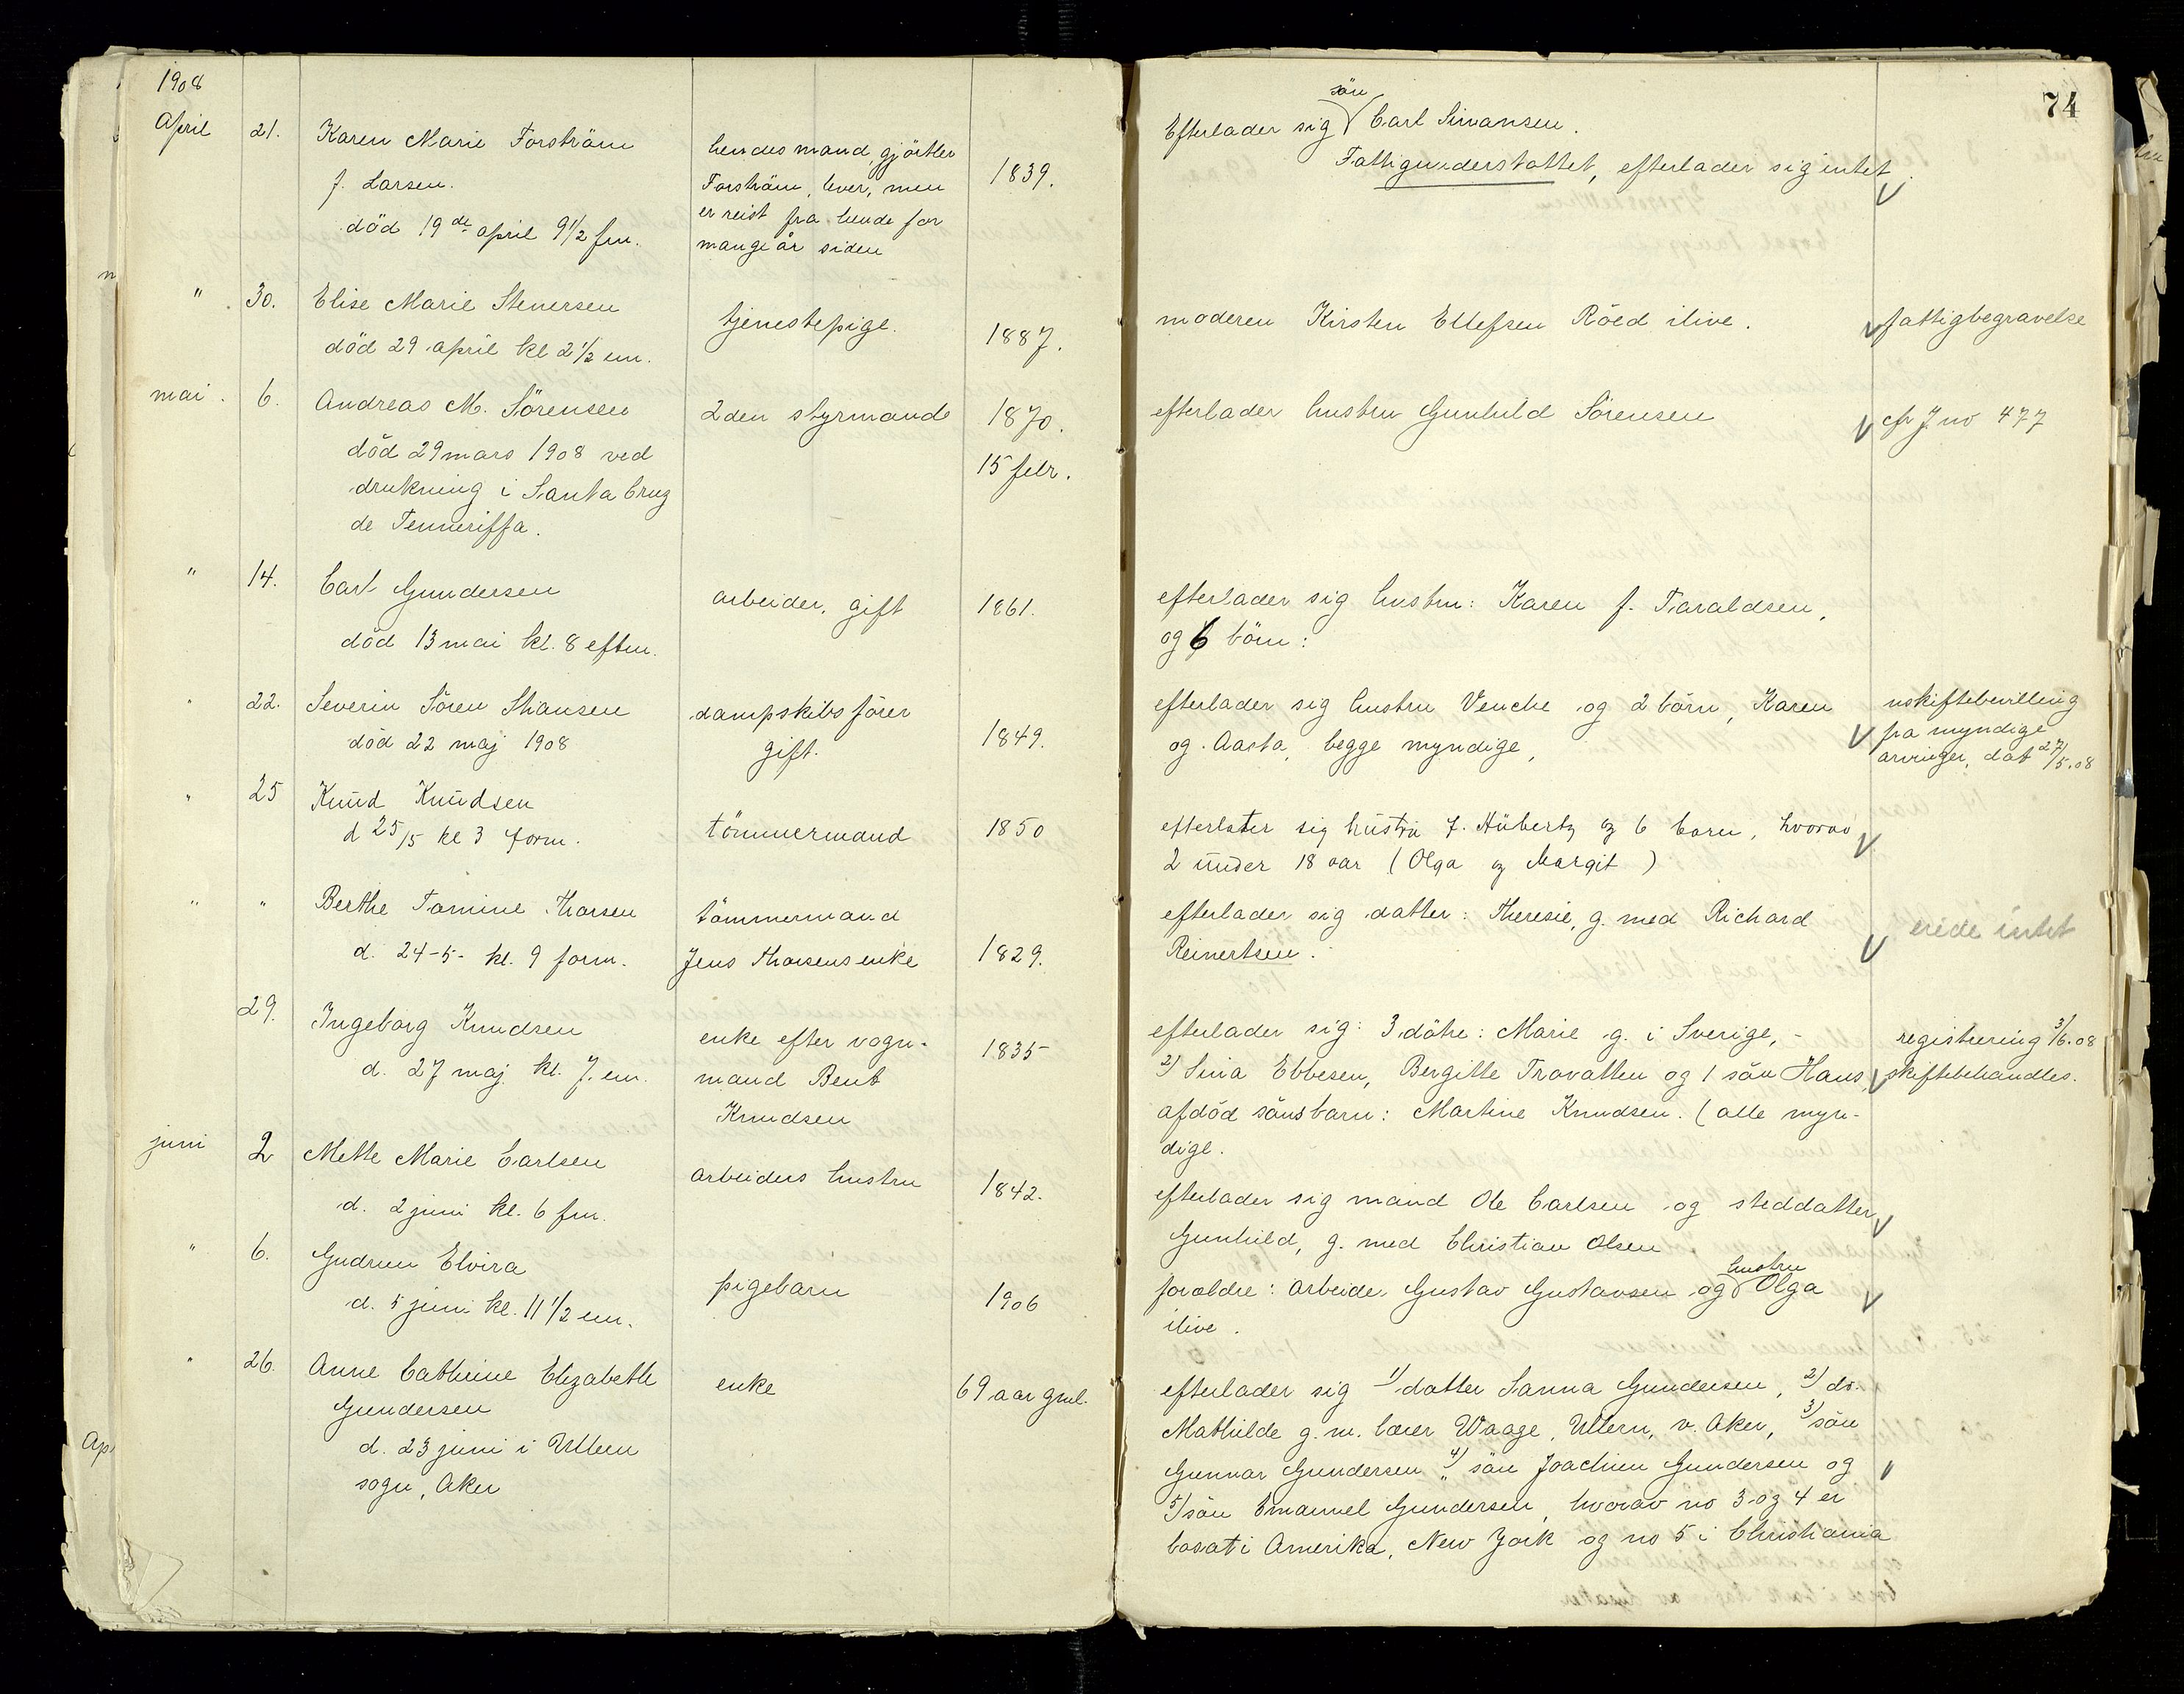 74
1908
April 21. Karen Marie Forström
f. Larsen.
död 19de april 9 1/2 fm.
hendes mand, gjörtler
Forström, lever, men
er reist fra hende for
mange år siden
1839.
Efterlader sig sön Carl Simansen.
Fattigunderstöttet, efterlader sig intet.
" 30. Elise Marie Stenersen
död 29 april kl 2 1/2 em.
tjenestepige.
1887.
moderen Kirsten Ellefsen Röed ilive.
fattigbegravelse
mai. 6. Andreas M. Sörensen
död 29 mars 1908 ved
drukning i Santa Cruz
de Tenneriffa.
2den styrmand
1870.
15 febr.
efterlader hustru Gunhild Sörensen
cfr J no 477
" 14. Carl Gundersen
död 13 mai kl. 8 eftm.
arbeider, gift
1861.
efterlader sig hustru: Karen f. Taraldsen,
og 6 börn:
" 22. Severin Sören Thansen
död 22 maj 1908
dampskibsförer
gift.
1849.
efterlader sig hustru Venche og 2 börn, Karen
og Aasta, begge myndige,
uskiftebevilling
fra myndige
arvinger, dat 27/5.08
" 25 Knud Knudsen
d 25/5 kl 3 form.
tömmermand
1850
efterlater sig hustru f. Hübertz og 6 barn, hvorav
2 under 18 aar (Olga og Margit)
" " Berthe Tomine Thorsen
d. 24-5- kl. 9 form.
tömmermand
Jens Thorsens enke
1829.
efterlader sig datter: Theresie, g. med Richard
Reinertsen.
eiede intet
29. Ingeborg Knudsen
d. 27 maj kl. 7 em.
enke efter vogn-
mand Bent
Knudsen
1835
efterlader sig: 3 dötre: Marie g. i Sverige, -
2) Sina Ebbesen, Bergitte Trovatten og 1 sön Hans,
afdöd sönsbarn: Martine Knudsen. (alle myn-
dige.
registrering 3/6.08
skiftebehandles.
juni 2 Mette Marie Carlsen
d. 2 juni kl. 6 fm.
arbeiders hustru
1842.
efterlader sig mand Ole Carlsen og steddatter
Gunhild, g. med Christian Olsen
" 6. Gudrun Elvira
d. 5 juni kl. 11 1/2 em.
pigebarn
1906
forældre: arbeider Gustav Gustavsen og hustru Olga
ilive.
" 26. Anne Cathrine Elizabeth
Gundersen
d. 23 juni i Ullern
sogn, Aker
enke
69 aar gml.
efterlader sig 1) datter Sanna Gundersen, 2) do.
Mathilde g. m. lærer Waage, Ullern, v. Aker, 3) sön
Gunnar Gundersen, 4) sön Joachim Gundersen og
5) sön Emanuel Gundersen, hvorav no 3 og 4 er
bosat i Amerika, New York og no 5 i Christiania
Ap